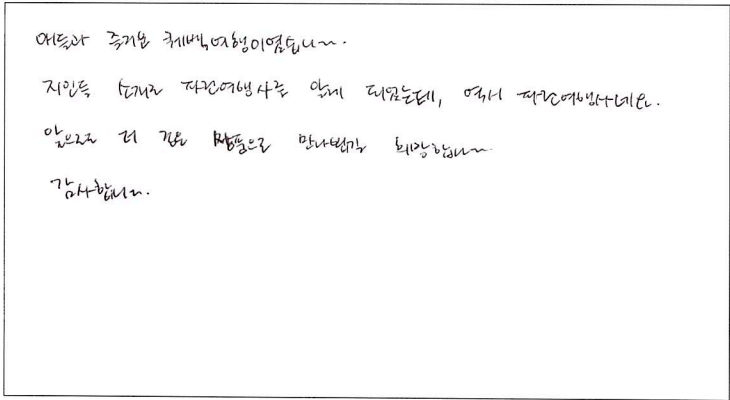 애들과 즐거운 퀘백여행이였습니다.
지인들 소개로 파란여행사를 알게 되었는데, 역시 파란여행사네요.
앞으로도 더 좋은 상품으로 만나뵙길 희망합니다.
감사합니다.